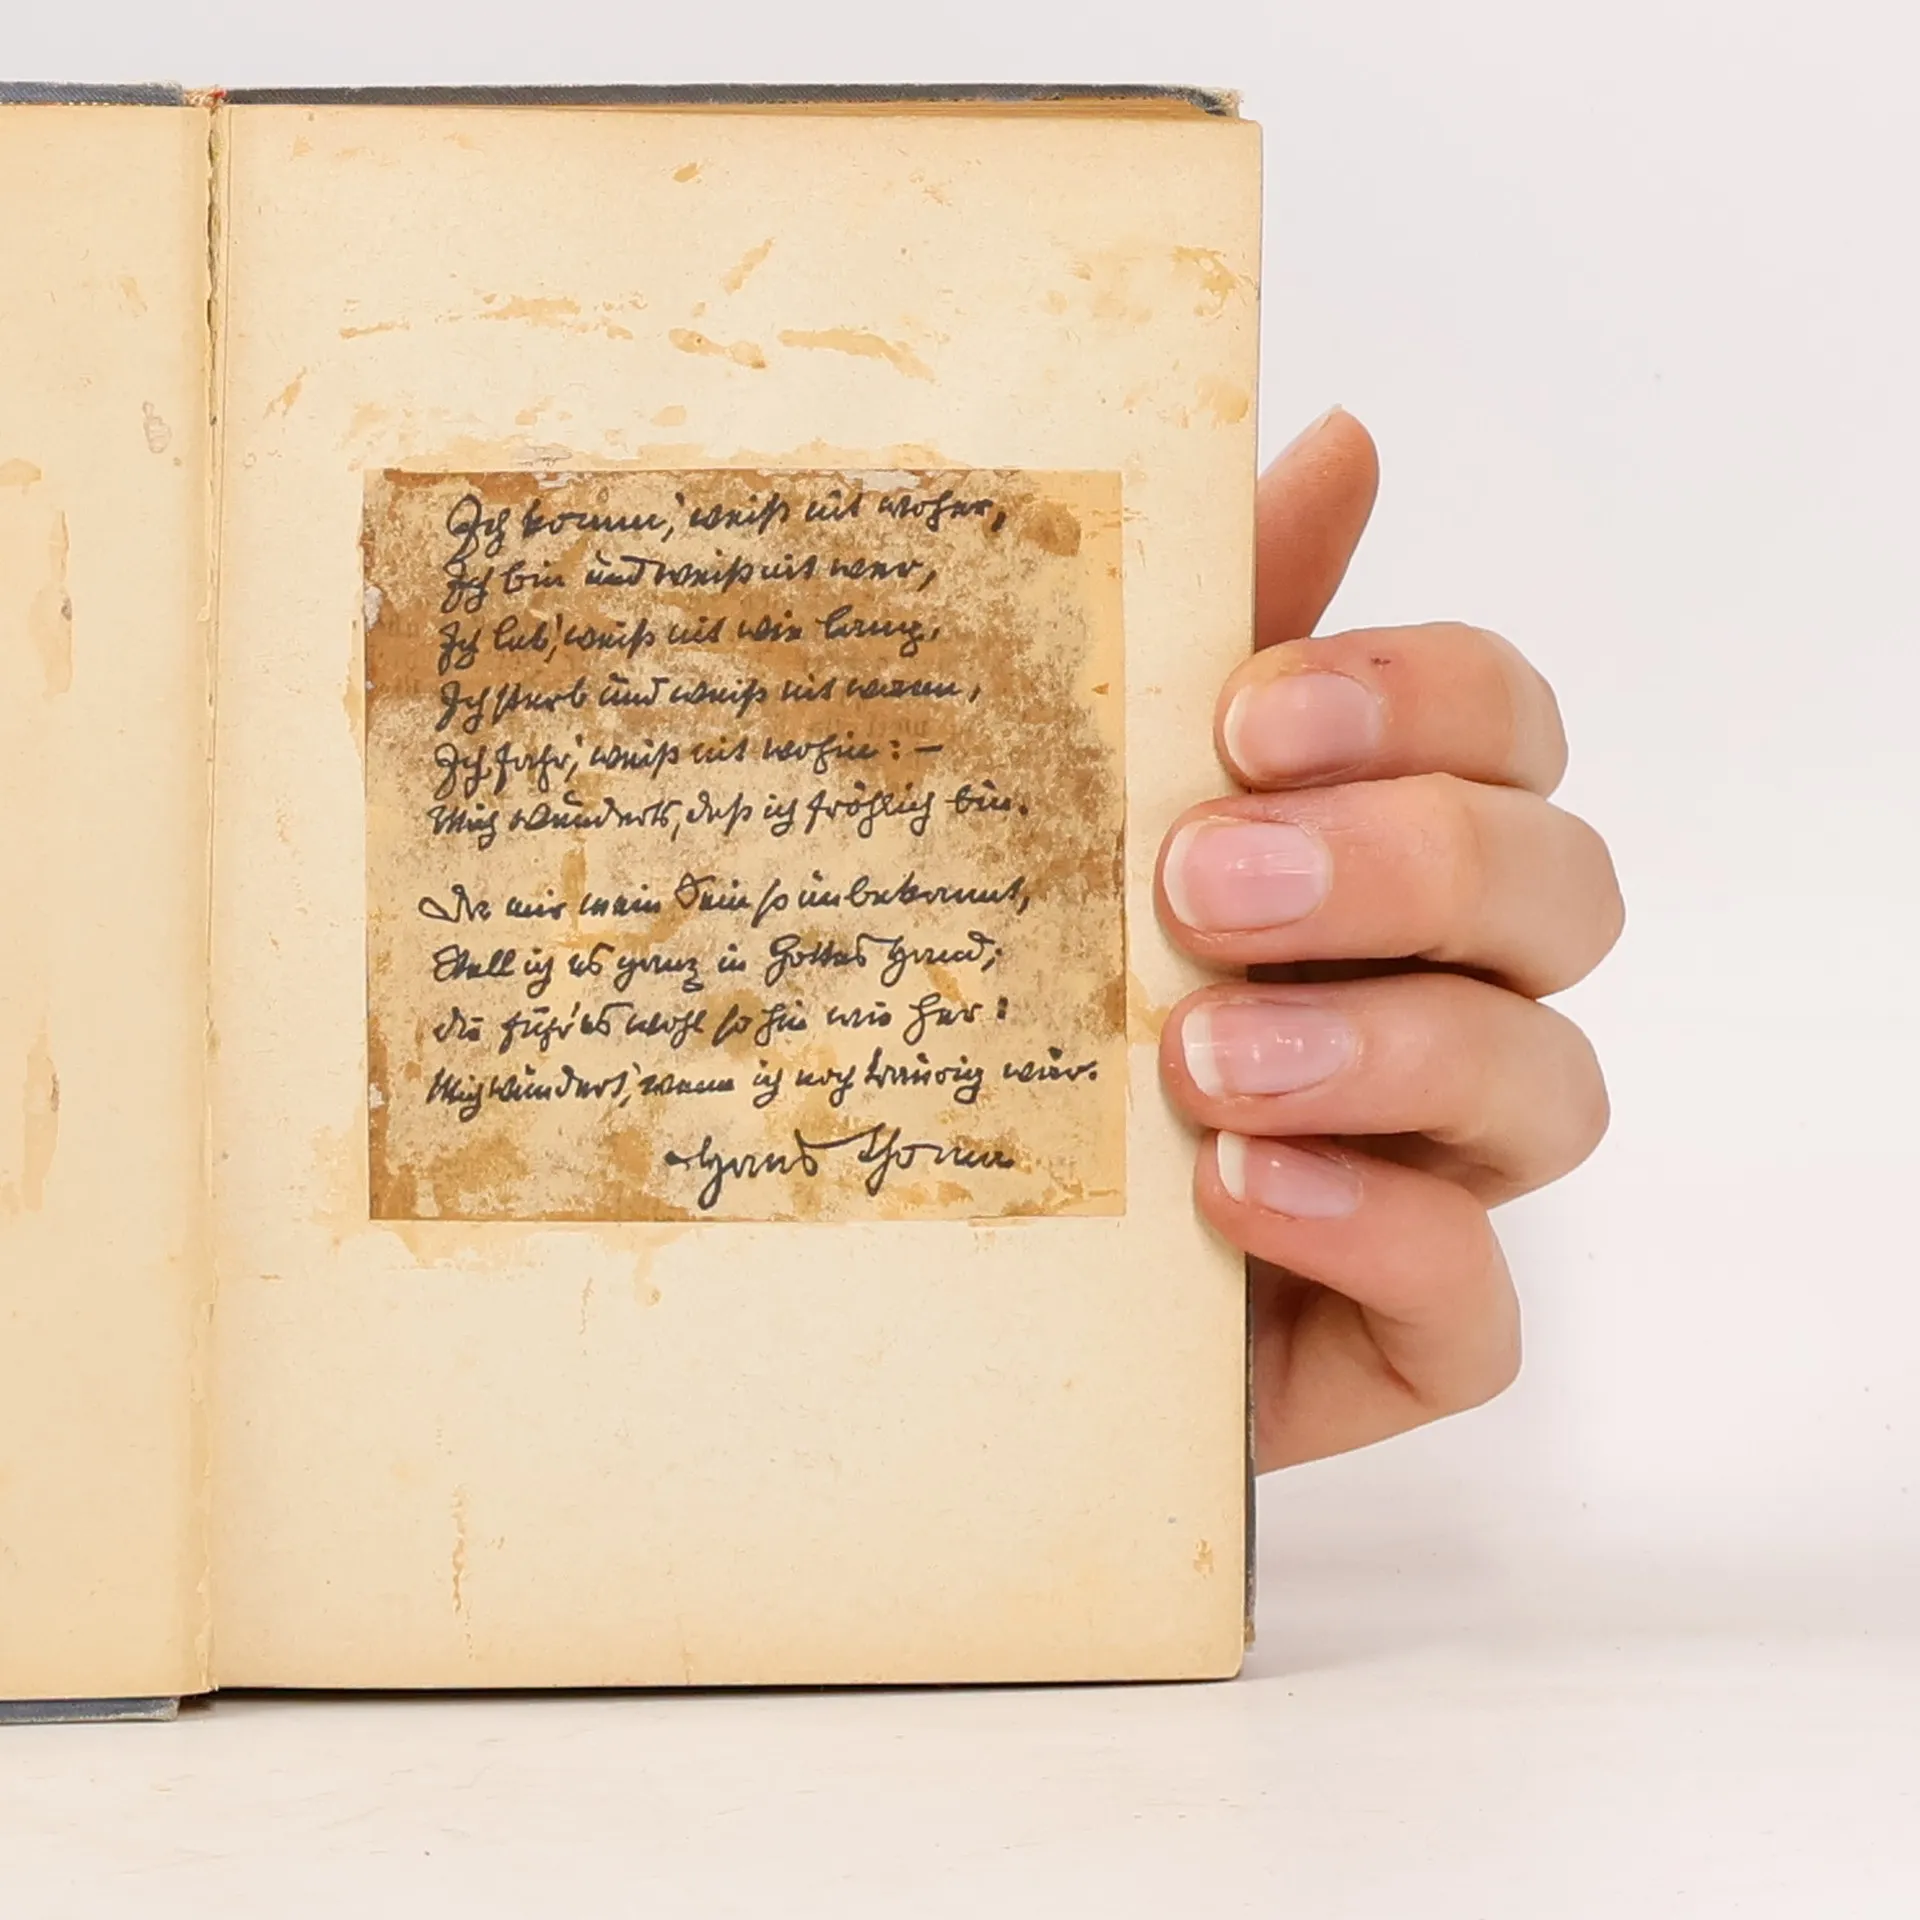 Ich komm', weiß nit woher,
Ich bin und weiß nit wer,
Ich leb', weiß nit wie lang,
Ich sterb und weiß nit wann,
Ich fahr', weiß nit wohin: –
Mich wundert's, daß ich fröhlich bin.
Da mir mein Sein so unbekannt,
Stell ich es ganz in Gottes Hand;
die führ' es wohl so hin wie her:
Mich wundert', wenn ich noch traurig wär.
Hans Thoma